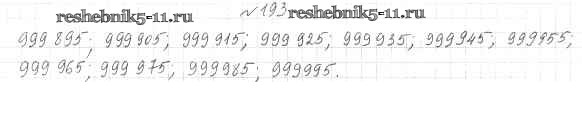 №193
reshebnik5-11.ru reshebnik5-11.ru
999 895; 999 905; 999 915; 999 925; 999 935; 999 945; 999 955;
999 965; 999 975; 999 985; 999 995.